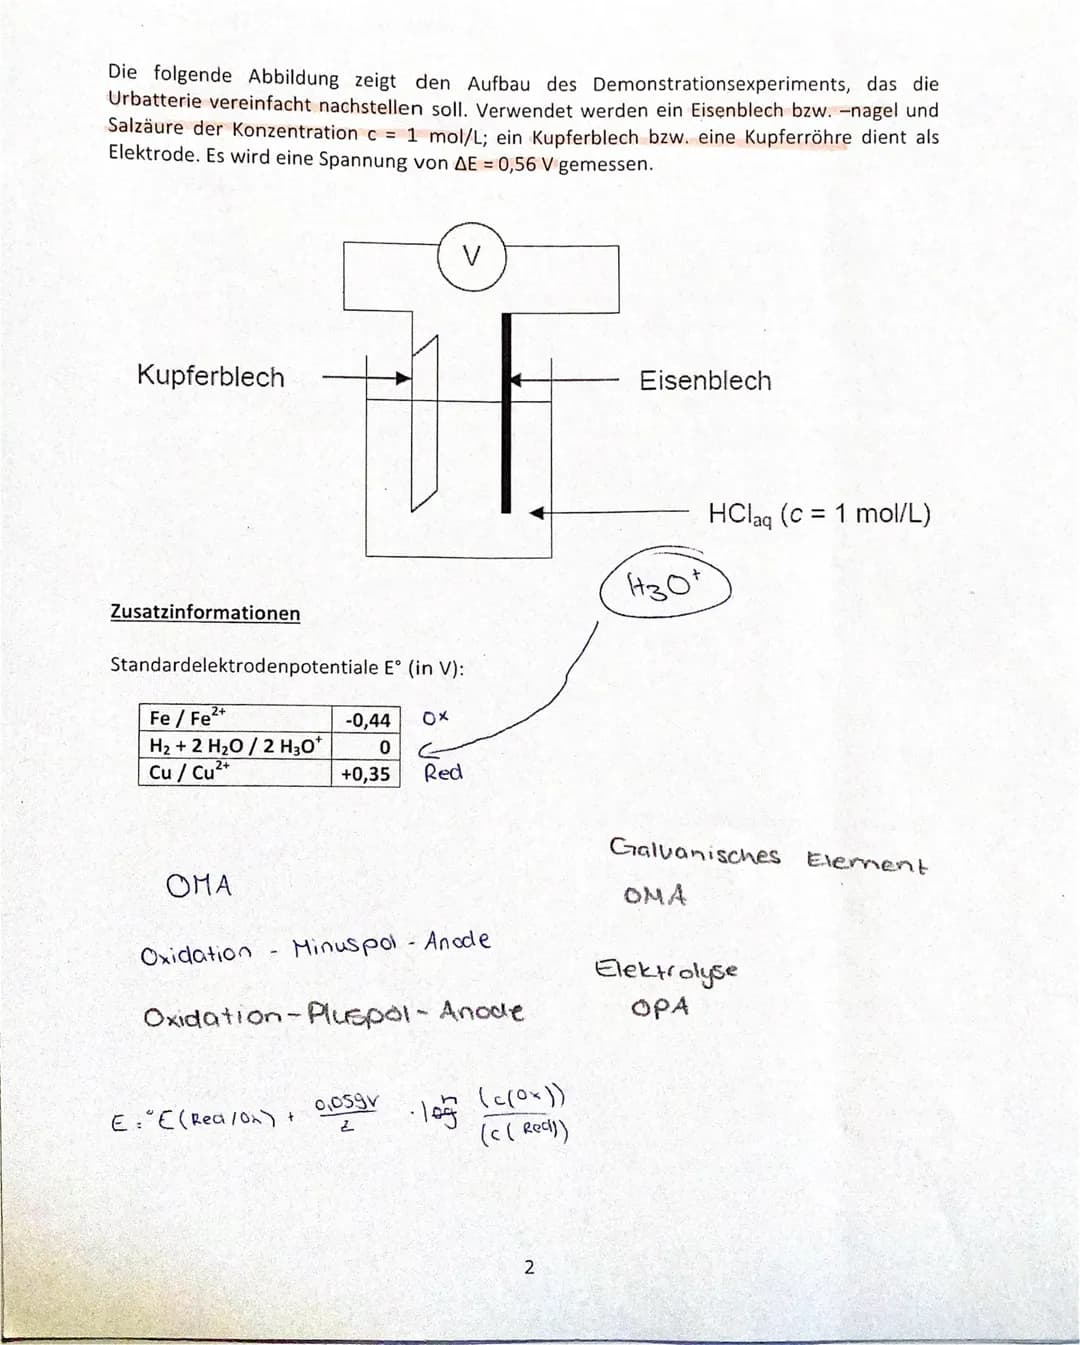 Die folgende Abbildung zeigt den Aufbau des Demonstrationsexperiments, das die
Urbatterie vereinfacht nachstellen soll. Verwendet werden ein Eisenblech bzw. –nagel und
Salzäure der Konzentration c = 1 mol/L; ein Kupferblech bzw. eine Kupferröhre dient als
Elektrode. Es wird eine Spannung von ΔE = 0,56 V gemessen.
V
Kupferblech
Eisenblech
HClaq (c = 1 mol/L)
H3O+
Zusatzinformationen
Standardelektrodenpotentiale E° (in V):
Fe / Fe²⁺ -0,44 Ox
H₂ + 2 H₂O / 2 H₃O⁺ 0
Cu / Cu²⁺ +0,35 Red
Galvanisches Element
OMA
OMA
Oxidation - Minuspol - Anode
Elektrolyse
Oxidation - Pluspol - Anode
OPA
E = °E (Red/Ox) + 0,059V / z · (c(Ox)) / (c(Red))
2